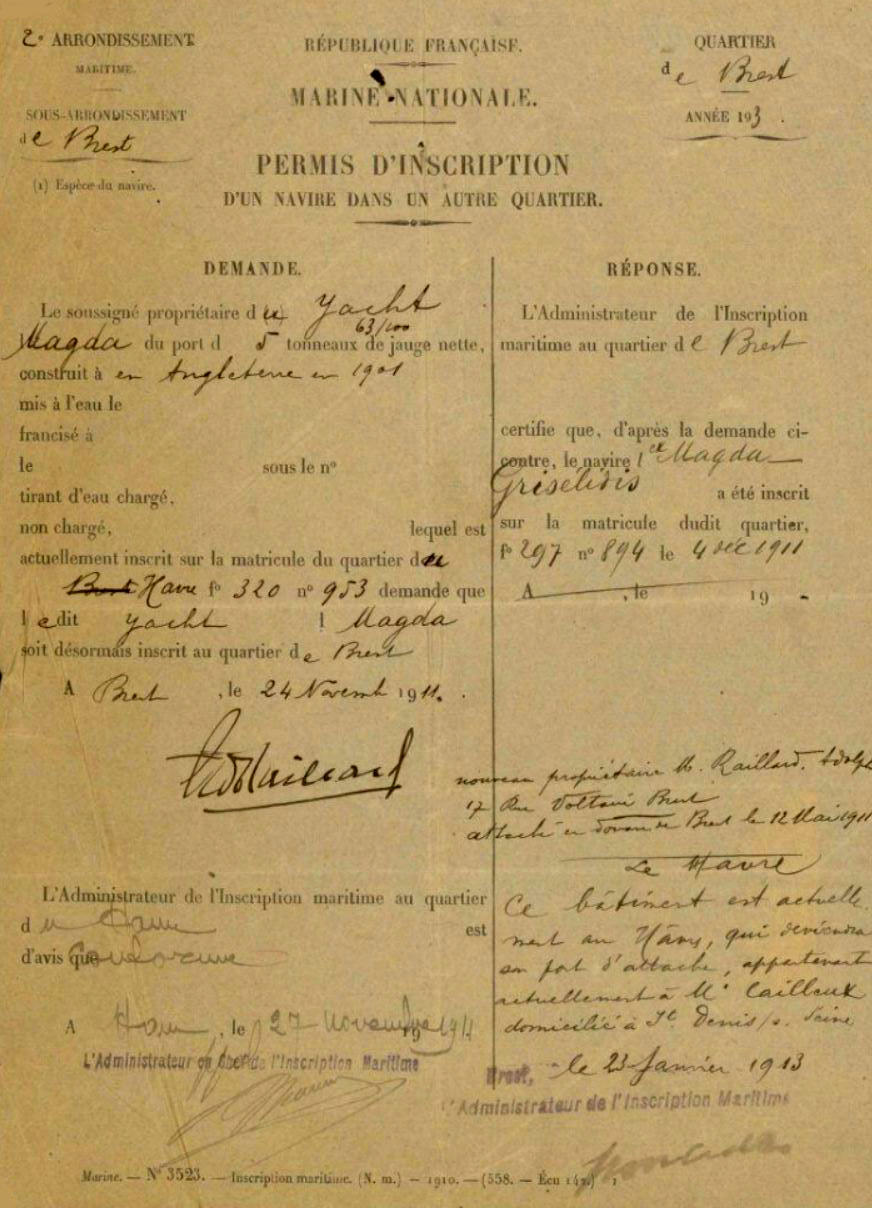 2e ARRONDISSEMENT
MARITIME.
SOUS-ARRONDISSEMENT
de Brest
(1) Espèce du navire.
RÉPUBLIQUE FRANÇAISE.
MARINE NATIONALE.
PERMIS D'INSCRIPTION
D'UN NAVIRE DANS UN AUTRE QUARTIER.
QUARTIER
de Brest
ANNÉE 193 .
DEMANDE.
Le soussigné propriétaire du Yacht
63/100
Magda du port d 5 tonneaux de jauge nette,
construit à en Angleterre en 1901
mis à l'eau le
francisé à
le sous le n°
tirant d'eau chargé,
non chargé, lequel est
actuellement inscrit sur la matricule du quartier du
Brest Havre f° 320 n° 953 demande que
ledit yacht l Magda
soit désormais inscrit au quartier de Brest
A Brest , le 24 Novemb 1911.
L'Administrateur de l'Inscription maritime au quartier
du Havre est
d'avis que
A Havre, le 27 Novembre 1911
L'Administrateur en chef de l'Inscription Maritime
RÉPONSE.
L'Administrateur de l'Inscription
maritime au quartier de Brest
certifie que, d'après la demande ci-
contre, le navire l ex Magda
Grisélidis a été inscrit
sur la matricule dudit quartier,
f° 297 n° 894 le 4 déc 1911
A , le 19
nouveau propriétaire M. Raillard. Adolph
17 Rue Voltaire Brest
attaché en douane de Brest le 12 Mai 1911
Le Havre
Ce bâtiment est actuelle
ment au Hâvre, qui deviendra
son port d'attache, appartenant
actuellement à Mr Cailleux
domicilié à St Denis /s. Seine
Brest, le 23 Janvier 1913
L'Administrateur de l'Inscription Maritime
Marine. — N° 3523. — Inscription maritime. (N. m.) — 1910. — (558. — Écu 1